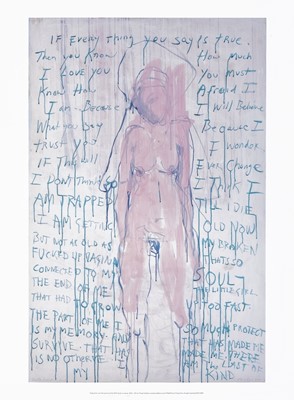 IF EVERYTHING YOU SAY IS TRUE.
Then you Know How much
I LOVE you You Must
Know How Afraid I
I am. Because I WILL Believe
What you say Because I
trust you I WONDER
IF This will Ever Change
I DON'T THINK SO I THINK I
AM TRAPPED TILL I DIE
I AM GETTING OLD NOW
BUT NOT AS OLD AS MY BROKEN
FUCKED UP VAGINA THATS SO
CONNECTED TO MY SOUL
THE END OF ME THE LITTLE GIRL
THAT HAD TO GROW UP TOO FAST
THE PART OF ME I SO MUCH PROTECT
IS MY MEMORY AND THAT HAS MADE ME
SURVIVE. THAT HAS MADE ME. THERE
IS NO OTHER. I AM THE LAST OF
MY KIND